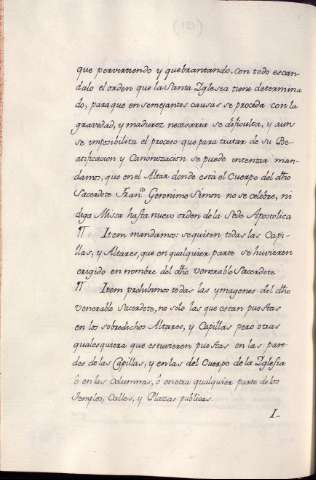 que pervirtiendo y quebrantando, con todo escan-
dalo el orden que la Santa Iglesia tiene determina-
do, para que en semejantes causas se proceda con la
gravedad, y madurez necesaria se dificulta, y aun
se imposibilita el proceso que para tratar de su Be-
atificacion y Canonizacion se puede intentar man-
damos, que en el Altar donde está el Cuerpo del dho
Sacerdote Franco. Geronimo Simon no se celebre, ni
diga Missa hasta nuevo orden de la Sede Apostolica
¶ Item mandamos se quiten todas las Capi-
llas, y Altares, que en qualquier parte se huvieren
erigido en nombre del dho venerable Sacerdote
¶ Item prohibimos todas las ymagenes del dho
venerable Sacerdote, no solo las que estan puestas
en los sobredichos Altares, y Capillas pero otras
qualesquiera que estuvieren puestas en las pare-
des de las Capillas, y en las del Cuerpo de la Iglesia
ó en las Columnas, ó en otra qualquier parte de los
Templos, Calles, y Plazas publicas.
I-